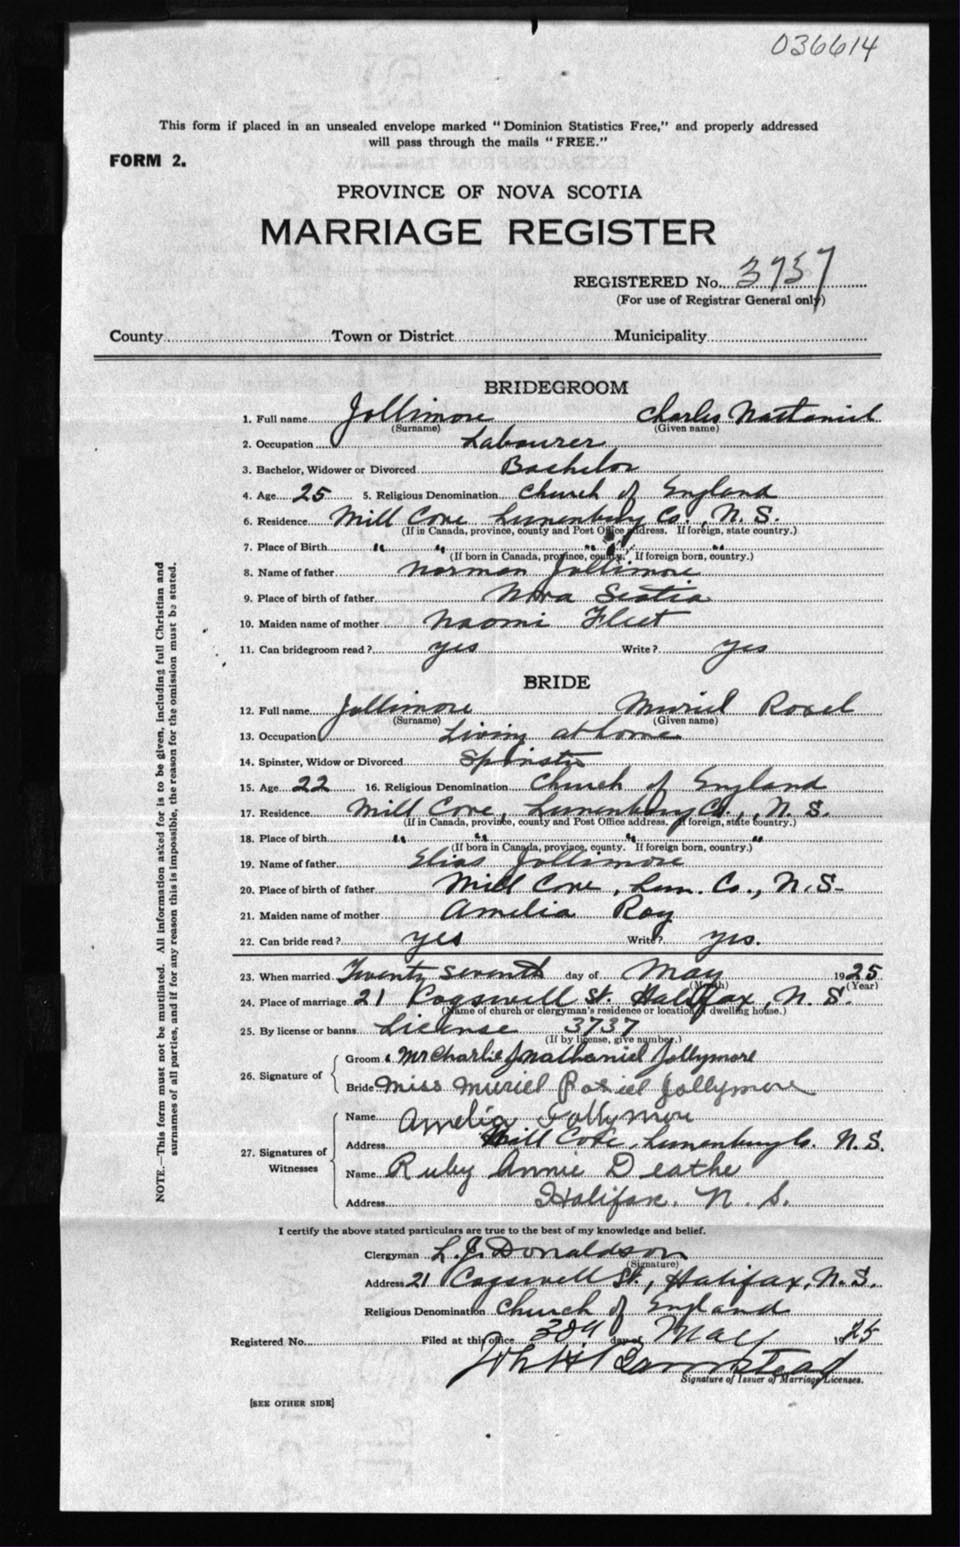 036614
This form if placed in an unsealed envelope marked "Dominion Statistics Free," and properly addressed
will pass through the mails "FREE."
FORM 2.
PROVINCE OF NOVA SCOTIA
MARRIAGE REGISTER
REGISTERED No. 3737
(For use of Registrar General only)
County Town or District Municipality
BRIDEGROOM
1. Full name Jollimore Charles Nathaniel
(Surname) (Given name)
2. Occupation Labourer
3. Bachelor, Widower or Divorced Bachelor
4. Age 25 5. Religious Denomination Church of England
6. Residence Mill Cove Lunenburg Co., N.S.
(If in Canada, province, county and Post Office address. If foreign, state country.)
7. Place of Birth " " " "
(If born in Canada, province, county. If foreign born, country.)
8. Name of father Norman Jollimore
9. Place of birth of father Nova Scotia
10. Maiden name of mother Naomi Fleet
11. Can bridegroom read? yes Write? yes
BRIDE
12. Full name Jollimore Muriel Roxel
(Surname) (Given name)
13. Occupation Living at home
14. Spinster, Widow or Divorced Spinster
15. Age 22 16. Religious Denomination Church of England
17. Residence Mill Cove, Lunenburg Co., N.S.
(If in Canada, province, county and Post Office address. If foreign, state country.)
18. Place of birth " " " "
(If born in Canada, province, county. If foreign born, country.)
19. Name of father Elias Jollimore
20. Place of birth of father Mill Cove, Lun. Co., N.S.
21. Maiden name of mother Amelia Roy
22. Can bride read? yes Write? yes.
23. When married Twenty seventh day of May 1925
(Month) (Year)
24. Place of marriage 21 Cogswell St. Halifax, N.S.
(Name of church or clergyman's residence or location of dwelling house.)
25. By license or banns License 3737
(If by license, give number.)
26. Signature of
Groom Mr Charlie Jnathaniel Jollymore
Bride Miss Muriel Jollymore
27. Signatures of Witnesses
Name Amelia Jollymore
Address Mill Cove, Lunenburg Co. N.S.
Name Ruby Annie Deathe
Address Halifax. N. S.
I certify the above stated particulars are true to the best of my knowledge and belief.
Clergyman L. J. Donaldson
(Signature)
Address 21 Cogswell St., Halifax, N.S.
Religious Denomination Church of England
Registered No. Filed at this office day of May 1925
Signature of Issuer of Marriage Licenses.
[SEE OTHER SIDE]
NOTE.—This form must not be mutilated. All information asked for is to be given, including full Christian and
surnames of all parties, and if for any reason this is impossible, the reason for the omission must be stated.